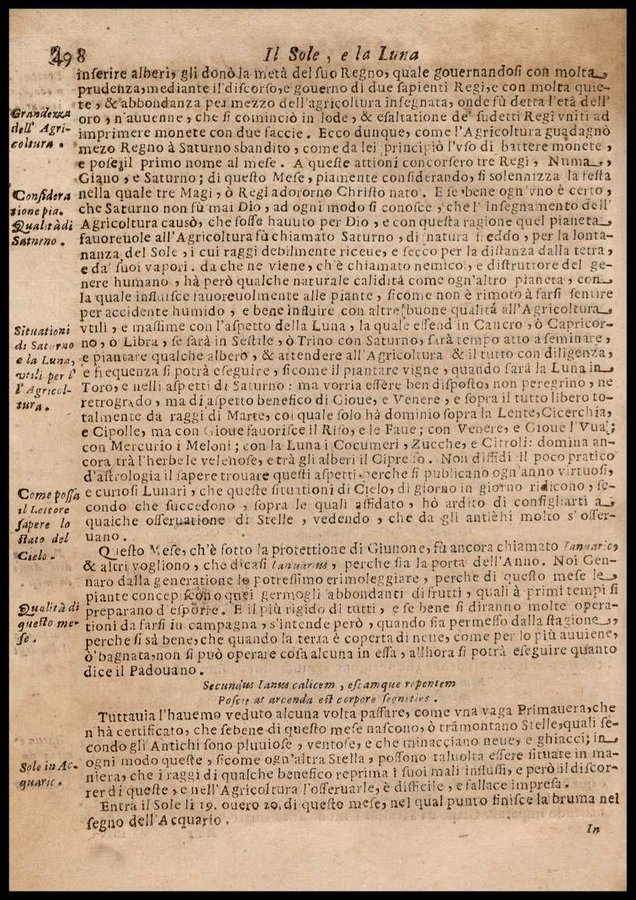 298
Il Sole, e la Luna
inserire alberi, gli donò la metà del suo Regno, quale gouernandosi con molta
prudenza, mediante il discorso, e gouerno di due sapienti Regi, e con molta quie-
te, & abbondanza per mezzo dell'agricoltura insegnata, onde fù detta l'età dell'
oro, n'auuenne, che si cominciò in lode, & esaltatione de' sudetti Regi vniti ad
imprimere monete con due faccie. Ecco dunque, come l'Agricoltura guadagnò
mezo Regno à Saturno sbandito, come da lei principiò l'vso di battere monete,
e pose il primo nome al mese. A queste attioni concorsero tre Regi, Numa,
Giano, e Saturno; di questo Mese, piamente considerando, si solennizza la festa
nella quale tre Magi, ò Regi adororno Christo nato. E se bene ogn'vno è certo,
che Saturno non fù mai Dio, ad ogni modo si conosce, che l'insegnamento dell'
Agricoltura causò, che fosse hauuto per Dio, e con questa ragione quel pianeta
fauoreuole all'Agricoltura fù chiamato Saturno, di natura freddo, per la lonta-
nanza del Sole, i cui raggi debilmente riceue, e secco per la distanza dalla terra,
e da' suoi vapori. da che ne viene, ch'è chiamato nemico, e distruttore del ge-
nere humano, hà però qualche naturale calidità come ogn'altro pianeta, con
la quale influisce fauoreuolmente alle piante, sicome non è rimoto à farsi sentire
per accidente humido, e bene influire con altre buone qualità all'Agricoltura
vtili, e massime con l'aspetto della Luna, la quale essend in Cancro, ò Capricor-
no, ò Libra, se sarà in Sestile, ò Trino con Saturno, sarà tempo atto a seminare,
e piantare qualche albero, & attendere all'Agricoltura & il tutto con diligenza,
e frequenza si potrà eseguire, sicome il piantare vigne, quando sarà la Luna in
Toro, e nelli aspetti di Saturno: ma vorria essere ben disposto, non peregrino, ne
retrogrado, ma di aspetto benefico di Gioue, e Venere, e sopra il tutto libero to-
talmente da raggi di Marte, coi quale solo hà dominio sopra la Lente, Cicerchia,
e Cipolle, ma con Gioue fauorisce il Riso, e le Faue; con Venere, e Gioue l'Vua;
con Mercurio i Meloni; con la Luna i Cocumeri, Zucche, e Citroli: domina an-
cora trà l'herbe le velenose, e trà gli alberi il Cipresso. Non diffidi il poco pratico
d'astrologia il sapere trouare questi aspetti, perche si publicano ogn'anno virtuosi,
e curiosi Lunari, che queste situationi di Cielo, di giorno in giorno ridicono, se-
condo che succedono, sopra le quali affidato, hò ardito di consigliarti a
qualche osseruatione di Stelle, vedendo, che da gli antichi molto s'osser-
uano.
Questo Mese, ch'è sotto la protettione di Giunone, fù ancora chiamato Ianuario,
& altri vogliono, che dicasi Ianuarius, perche sia la porta dell'Anno. Noi Gen-
naro dalla generatione lo potressimo erimoleggiare, perche di questo mese le
piante concepiscono quei germogli abbondanti di frutti, quali à primi tempi si
preparano d'esporre. E il più rigido di tutti, e se bene si diranno molte opera-
tioni da farsi in campagna, s'intende però, quando sia permesso dalla stagione,
perche si sà bene, che quando la terra è coperta di neue, come per lo più auuiene,
ò bagnata, non si può operare cosa alcuna in essa, allhora si potrà eseguire quanto
dice il Padouano.
Secundus Ianus calicem, escamque repentem
Poscit at arcenda est corpore segnities.
Tuttauia l'hauemo veduto alcuna volta passare, come vna vaga Primauera, che
n'hà certificato, che sebene di questo mese nascono, ò tramontano Stelle, quali se-
condo gli Antichi sono pluuiose, ventose, e che minacciano neue, e ghiacci; in
ogni modo queste, sicome ogn'altra Stella, possono taluolta essere situate in ma-
niera, che i raggi di qualche benefico reprima i suoi mali influssi, e però il discor-
rer di queste, e nell'Agricoltura l'osseruarle, è difficile, e fallace impresa.
Entra il Sole li 19. ouero 20. di questo mese, nel qual punto finisce la bruma nel
segno dell'Acquario.
In
Grandezza
dell'Agri-
coltura.
Considera
tione pia.
Qualità di
Saturno.
Situationi
di Saturno
e la Luna,
vtili per l'
l'Agricol-
tura.
Come possa
il Lettore
sapere lo
stato del
Cielo.
Qualità di
questo me-
se.
Sole in Ac-
quario.